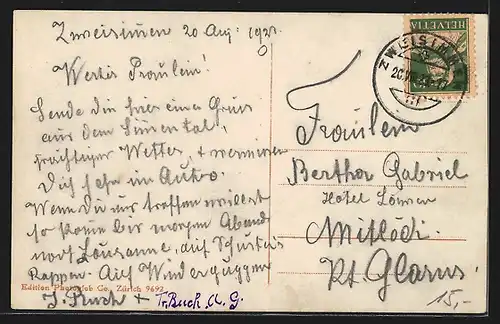 Zweisimen 20 Aug. 192
Wertes Fräulein!
Sende dir hier einen Gruss
aus dem Simental,
prächtiges Wetter, +
Dich sehr im Auto.
Wenn Du mir treffen willst
so komme bis morgen Abend
nach Lousanne, auf Schusters
Rappen. Auf Wiederguggen
J. Ruch + Tr. Buch. A. G.
Edition Photoglob Co. Zürich 9692
HELVETIA
ZWEISIMMEN
Fräulein
Bertha Gabriel
Hotel Löwen
Mitlödi
Kt. Glarus
15,-